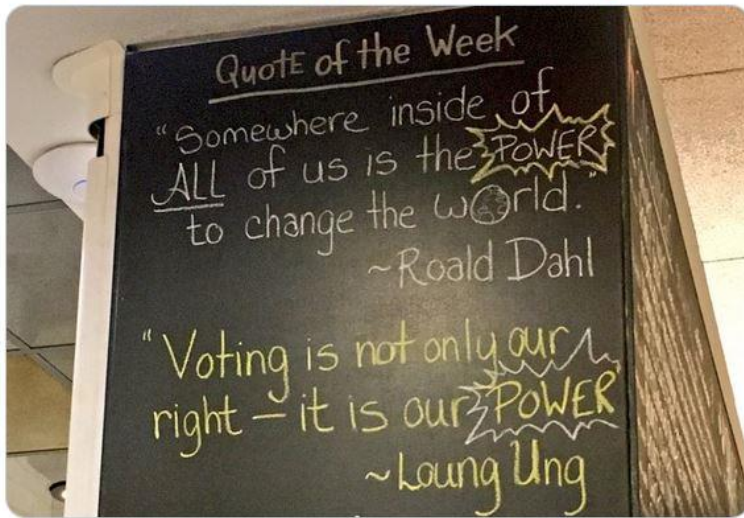 QuotE of the Week
"Somewhere inside of
ALL of us is the POWER
to change the world."
~Roald Dahl
"Voting is not only our
right — it is our POWER
~Loung Ung